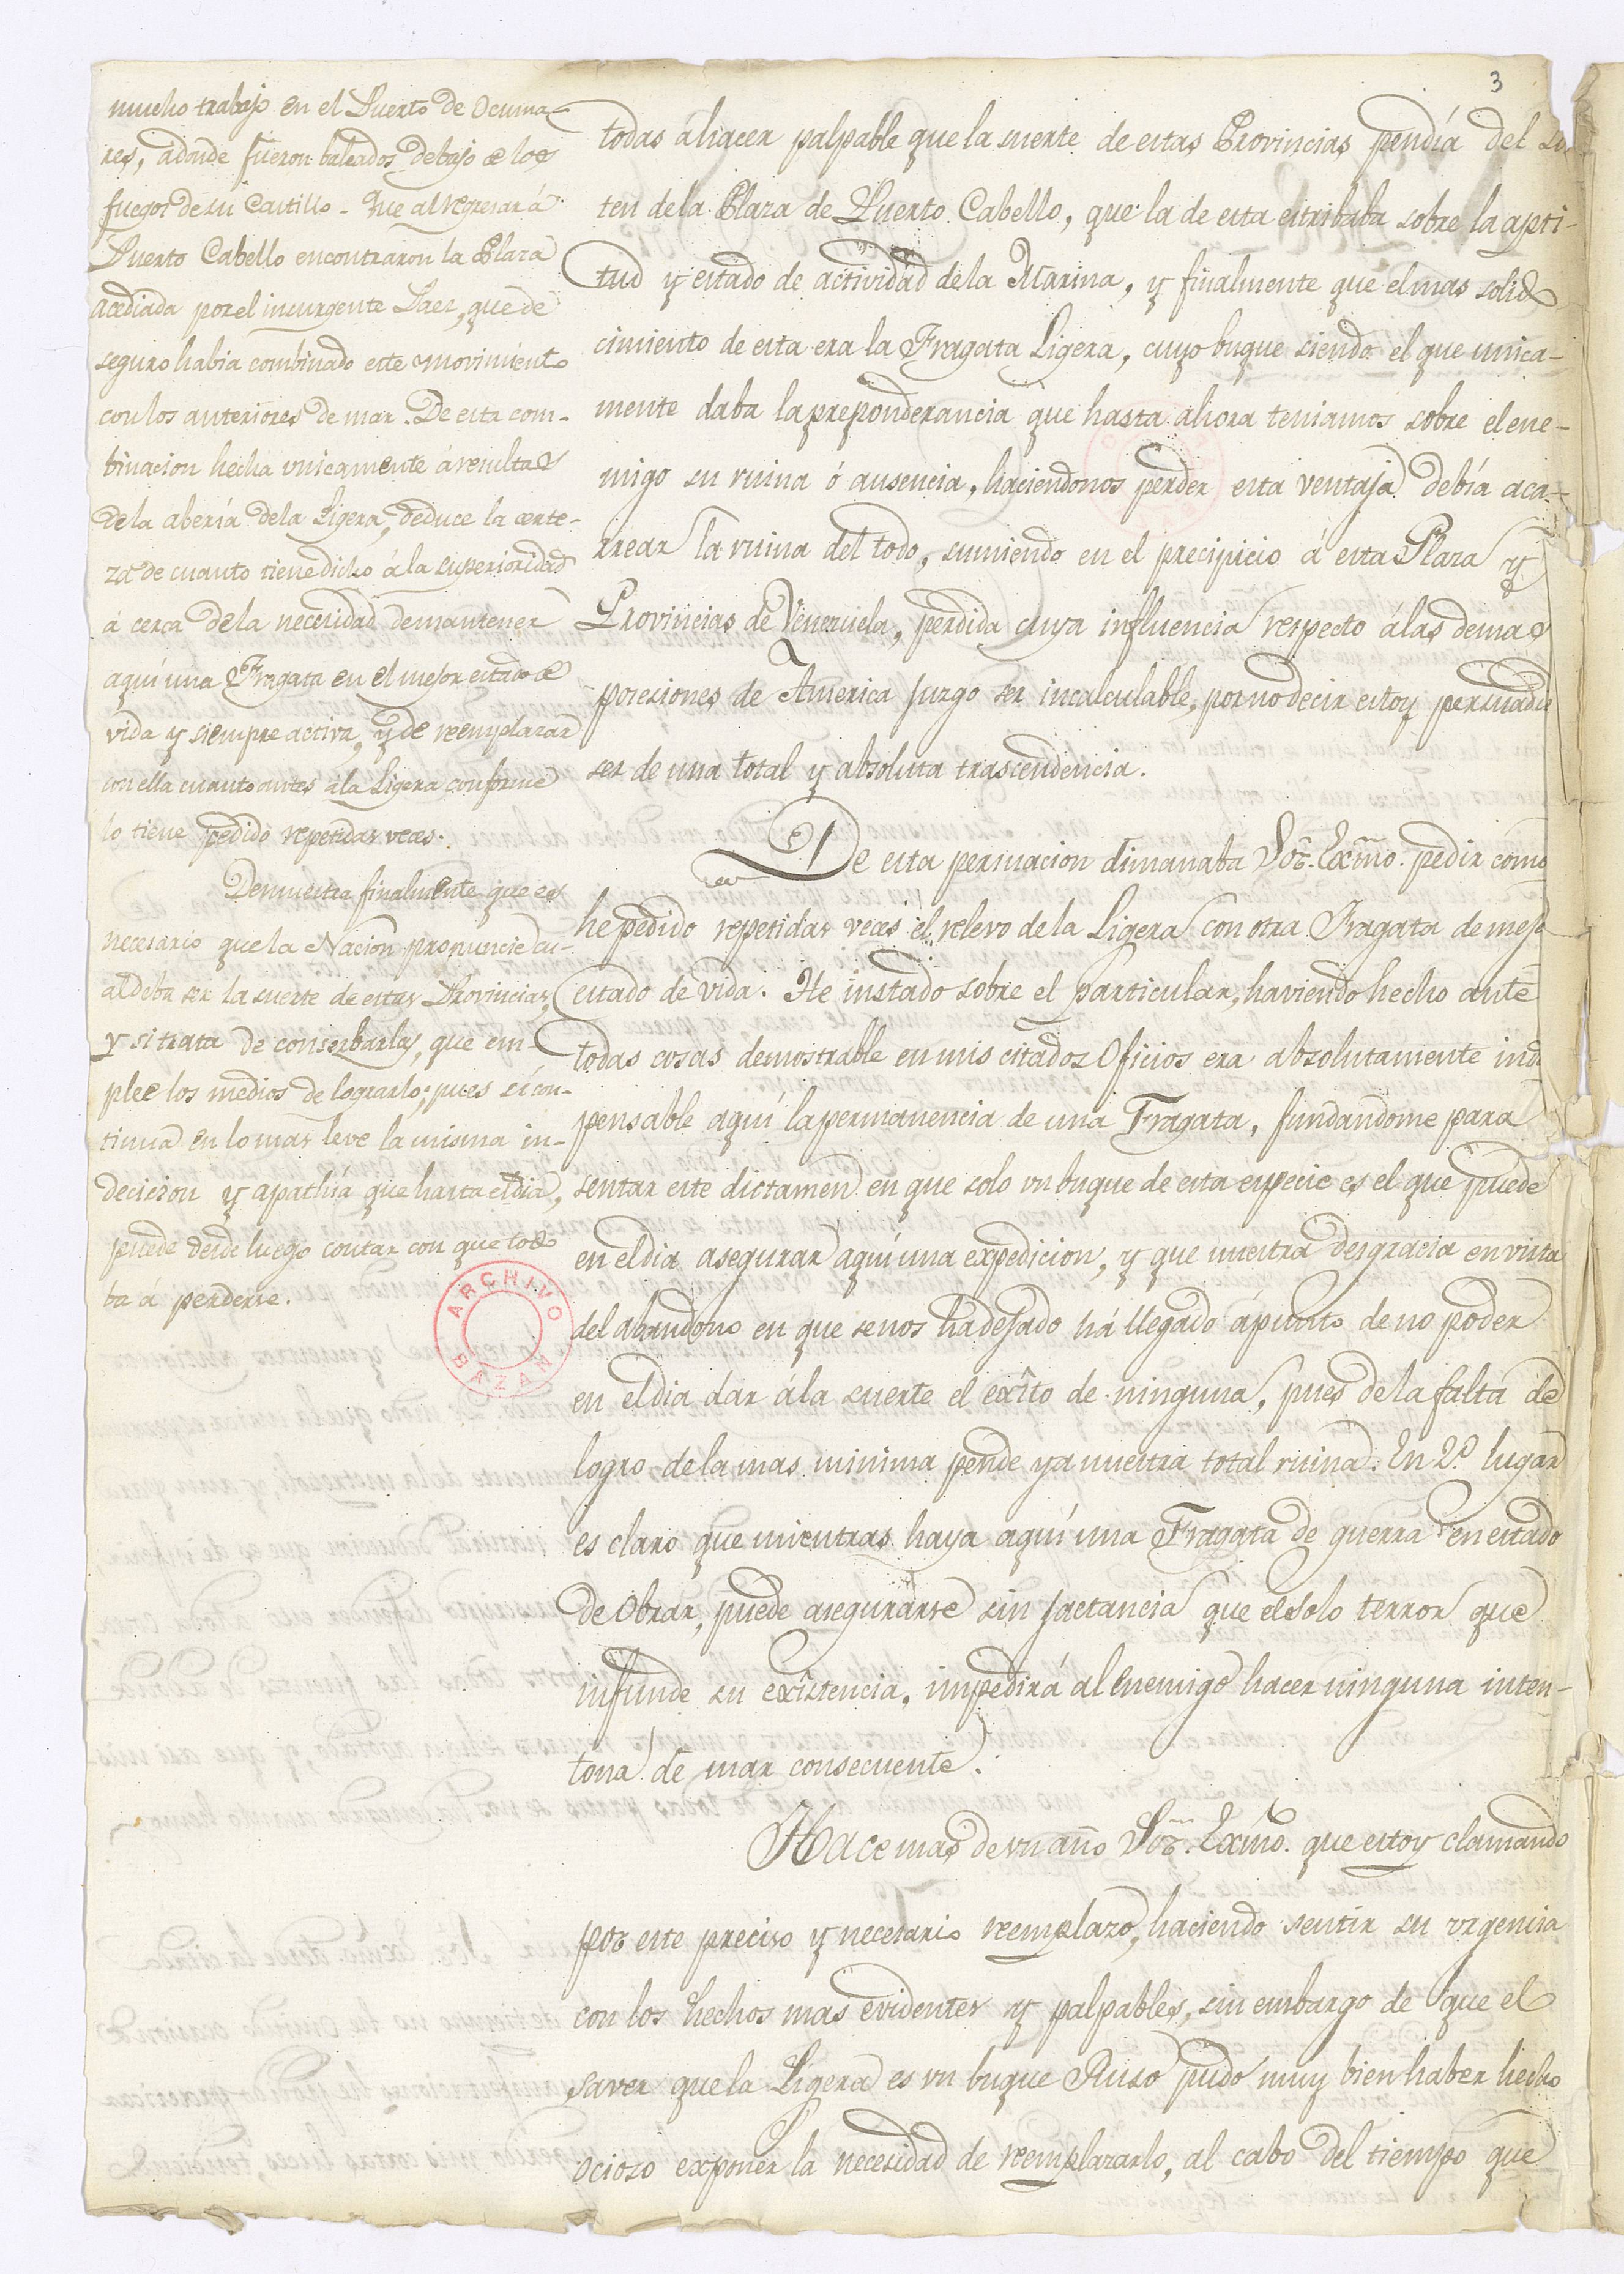 3
mucho trabajo en el Puerto de Ocuma-
res, adonde fueron baleados debajo de los
fuegos de su Castillo - Que al regresar á
Puerto Cabello encontraron la Plaza
acediada por el insurgente Paez, que de
seguro habia combinado este movimiento
con los anteriores de mar. De esta com-
binacion hecha vnicamente á resultas
de la abería de la Ligera, deduce la certe-
za de cuanto tiene dicho á la superioridad
á cerca de la necesidad de mantener
aquí una Fragata en el mejor estado de
vida y siempre activa, y de reemplazar
con ella cuanto antes a la Ligera conforme
lo tiene pedido repetidas veces.
Demuestra finalmente que es
necesario que la Nacion pronuncie cu-
al deba ser la suerte de estas Provincias,
y si trata de conserbarlas, que em
plee los medios de lograrlo; pues si con-
tinua en lo mas leve la misma in-
decicion y apathía que hasta el dia,
puede desde luego contar con que todo
ba á perderse.
ARCHIVO
BAZAN
todas á hacer palpable que la suerte de estas Provincias pendía del sos
ten de la Plaza de Puerto Cabello, que la de esta estribaba sobre la apti-
tud y estado de actividad de la Marina, y finalmente que el mas solido
cimiento de esta era la Fragata Ligera, cuyo buque siendo el que unica-
mente daba la preponderancia que hasta ahora teniamos sobre el ene-
migo su ruina ó ausencia, haciendonos perder esta ventaja debía aca-
rrear la ruina del todo, sumiendo en el precipicio á esta Plaza y
Provincias de Venezuela, perdida cuya influencia respecto á las demas
posesiones de America juzgo ser incalculable, por no decir estoy persuadido
ser de una total y absoluta trascendencia.
De esta persuacion dimanaba Sor. Exmo. pedir como
he pedido repetidas veces el relevo de la Ligera con otra Fragata de mejo
estado de vida. He instado sobre el particular, haviendo hecho ante
todas cosas demostrable en mis citados Oficios era absolutamente indi
pensable aquí la permanencia de una Fragata, fundandome para
sentar este dictamen en que solo vn buque de esta especie es el que puede
en el dia asegurar aquí una expedicion, y que nuestra desgracia en vista
del abandono en que se nos ha dejado há llegado á punto de no poder
en el dia dar á la suerte el exîto de ninguna, pues de la falta de
logro de la mas minima pende ya nuestra total ruina. En 2º lugar
es claro que mientras haya aquí una Fragata de guerra en estado
de Obrar, puede asegurarse sin jactancia que el solo terror que
infunde su exîstencia, impedirá al Enemigo hacer ninguna inten-
tona de mar consecuente.
Hace mas de vn año Sor. Exmo. que estoy clamando
por este preciso y necesario reemplazo, haciendo sentir su vrgencia
con los hechos mas evidentes y palpables, sin embargo de que el
saver que la Ligera es vn buque Ruso pudo muy bien haber hecho
ocioso exponer la necesidad de reemplazarlo, al cabo del tiempo que